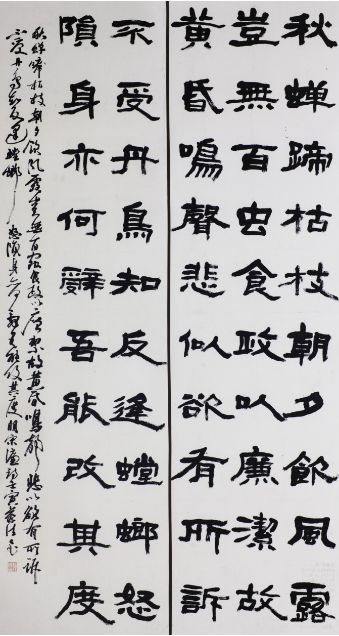 秋蝉蹄枯枝朝夕飲風露
豈無百虫食政以廉潔故
黄昏鳴聲悲似欲有所訴
不受丹鳥知反逢螳螂怒
隕身亦何辭吾能改其度
秋蝉啼枯枝朝夕飲風露豈無百虫食政以廉潔故黄昏鳴聲悲似欲有所訴
不受丹鳥知反逢螳螂怒隕身亦何辭吾能改其度明宋濂詩壬寅春